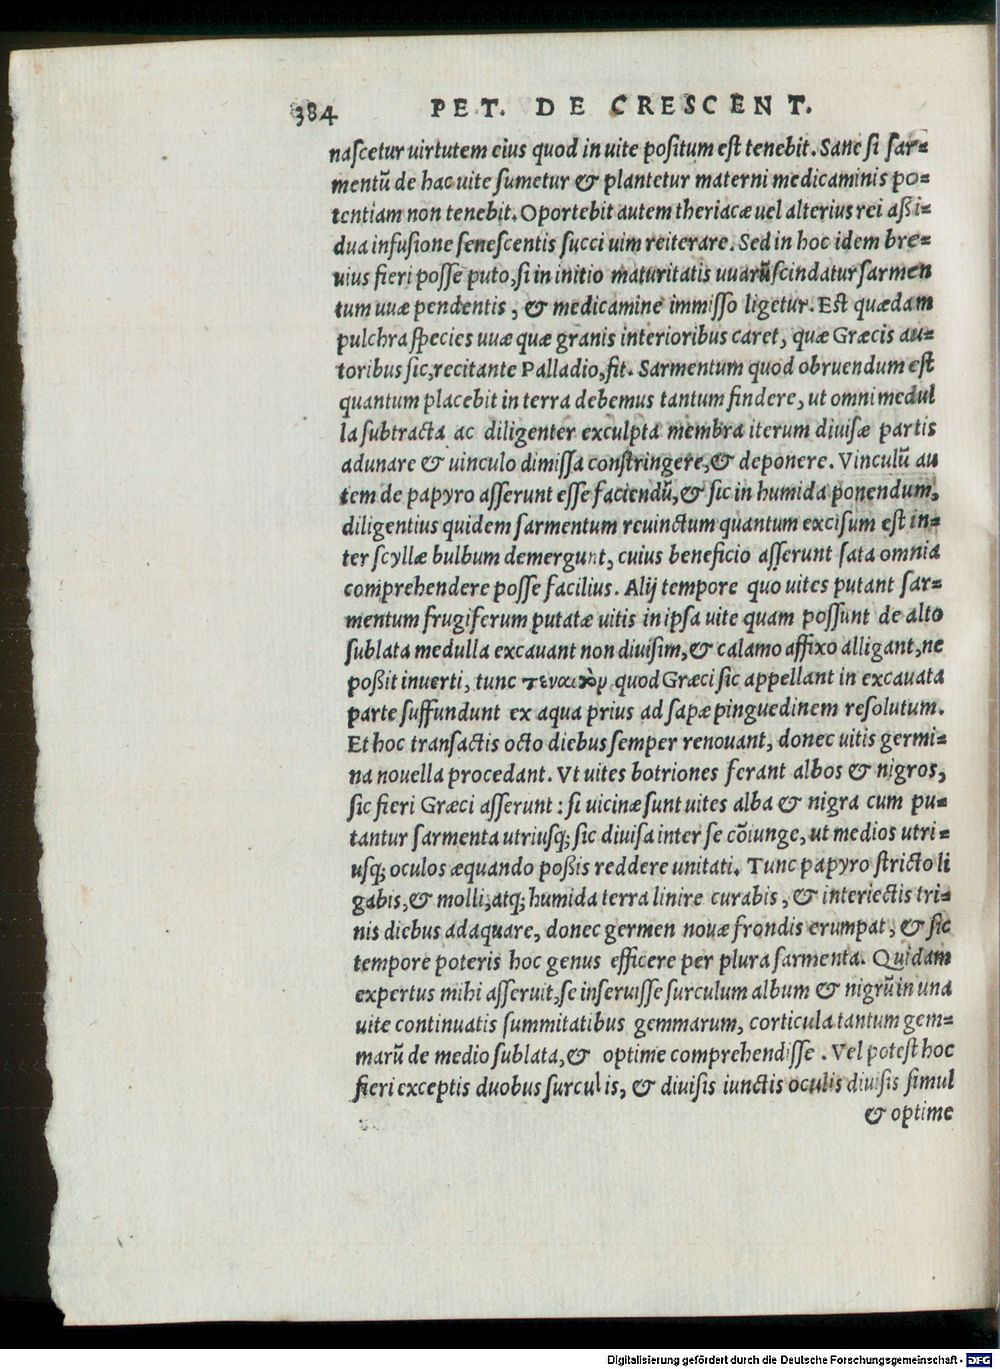 384 PET. DE CRESCENT.
naſcetur uirtutem eius quod in uite poſitum eſt tenebit. Sane ſi ſar=
mentũ de hac uite ſumetur & plantetur materni medicaminis po=
tentiam non tenebit. Oportebit autem theriacæ uel alterius rei aßi=
dua infuſione ſeneſcentis ſucci uim reiterare. Sed in hoc idem bre=
uius fieri poſſe puto, ſi in initio maturitatis uuarũ ſcindatur ſarmen
tum uuæ pendentis, & medicamine immiſſo ligetur. Eſt quædam
pulchra ſpecies uuæ quæ granis interioribus caret, quæ Græcis au=
toribus ſic, recitante Palladio, fit. Sarmentum quod obruendum eſt
quantum placebit in terra debemus tantum findere, ut omni medul
la ſubtracta ac diligenter exculpta membra iterum diuiſæ partis
adunare & uinculo dimiſſa conſtringere, & deponere. Vinculũ au
tem de papyro aſſerunt eſſe faciendũ, & ſic in humida ponendum,
diligentius quidem ſarmentum reuinctum quantum exciſum eſt in=
ter ſcyllæ bulbum demergunt, cuius beneficio aſſerunt ſata omnia
comprehendere poſſe facilius. Alij tempore quo uites putant ſar=
mentum frugiferum putatæ uitis in ipſa uite quam poſſunt de alto
ſublata medulla excauant non diuiſim, & calamo affixo alligant, ne
poßit inuerti, tunc quod Græci ſic appellant in excauata
parte ſuffundunt ex aqua prius ad ſapæ pinguedinem reſolutum.
Et hoc tranſactis octo diebus ſemper renouant, donec uitis germi=
na nouella procedant. Vt uites botriones ferant albos & nigros,
ſic fieri Græci aſſerunt: ſi uicinæ ſunt uites alba & nigra cum pu=
tantur ſarmenta utriuſq; ſic diuiſa inter ſe cõiunge, ut medios utri=
uſq; oculos æquando poßis reddere unitati. Tunc papyro ſtricto li
gabis, & molli, atq; humida terra linire curabis, & interiectis tri=
nis diebus adaquare, donec germen nouæ frondis erumpat, & ſic
tempore poteris hoc genus efficere per plura ſarmenta. Quidam
expertus mihi aſſeruit, ſe inſeruiſſe ſurculum album & nigrũ in una
uite continuatis ſummitatibus gemmarum, corticula tantum gem=
marũ de medio ſublata, & optime comprehendiſſe. Vel poteſt hoc
fieri exceptis duobus ſurculis, & diuiſis iunctis oculis diuiſis ſimul
& optime
Digitalisierung gefördert durch die Deutsche Forschungsgemeinschaft - DFG